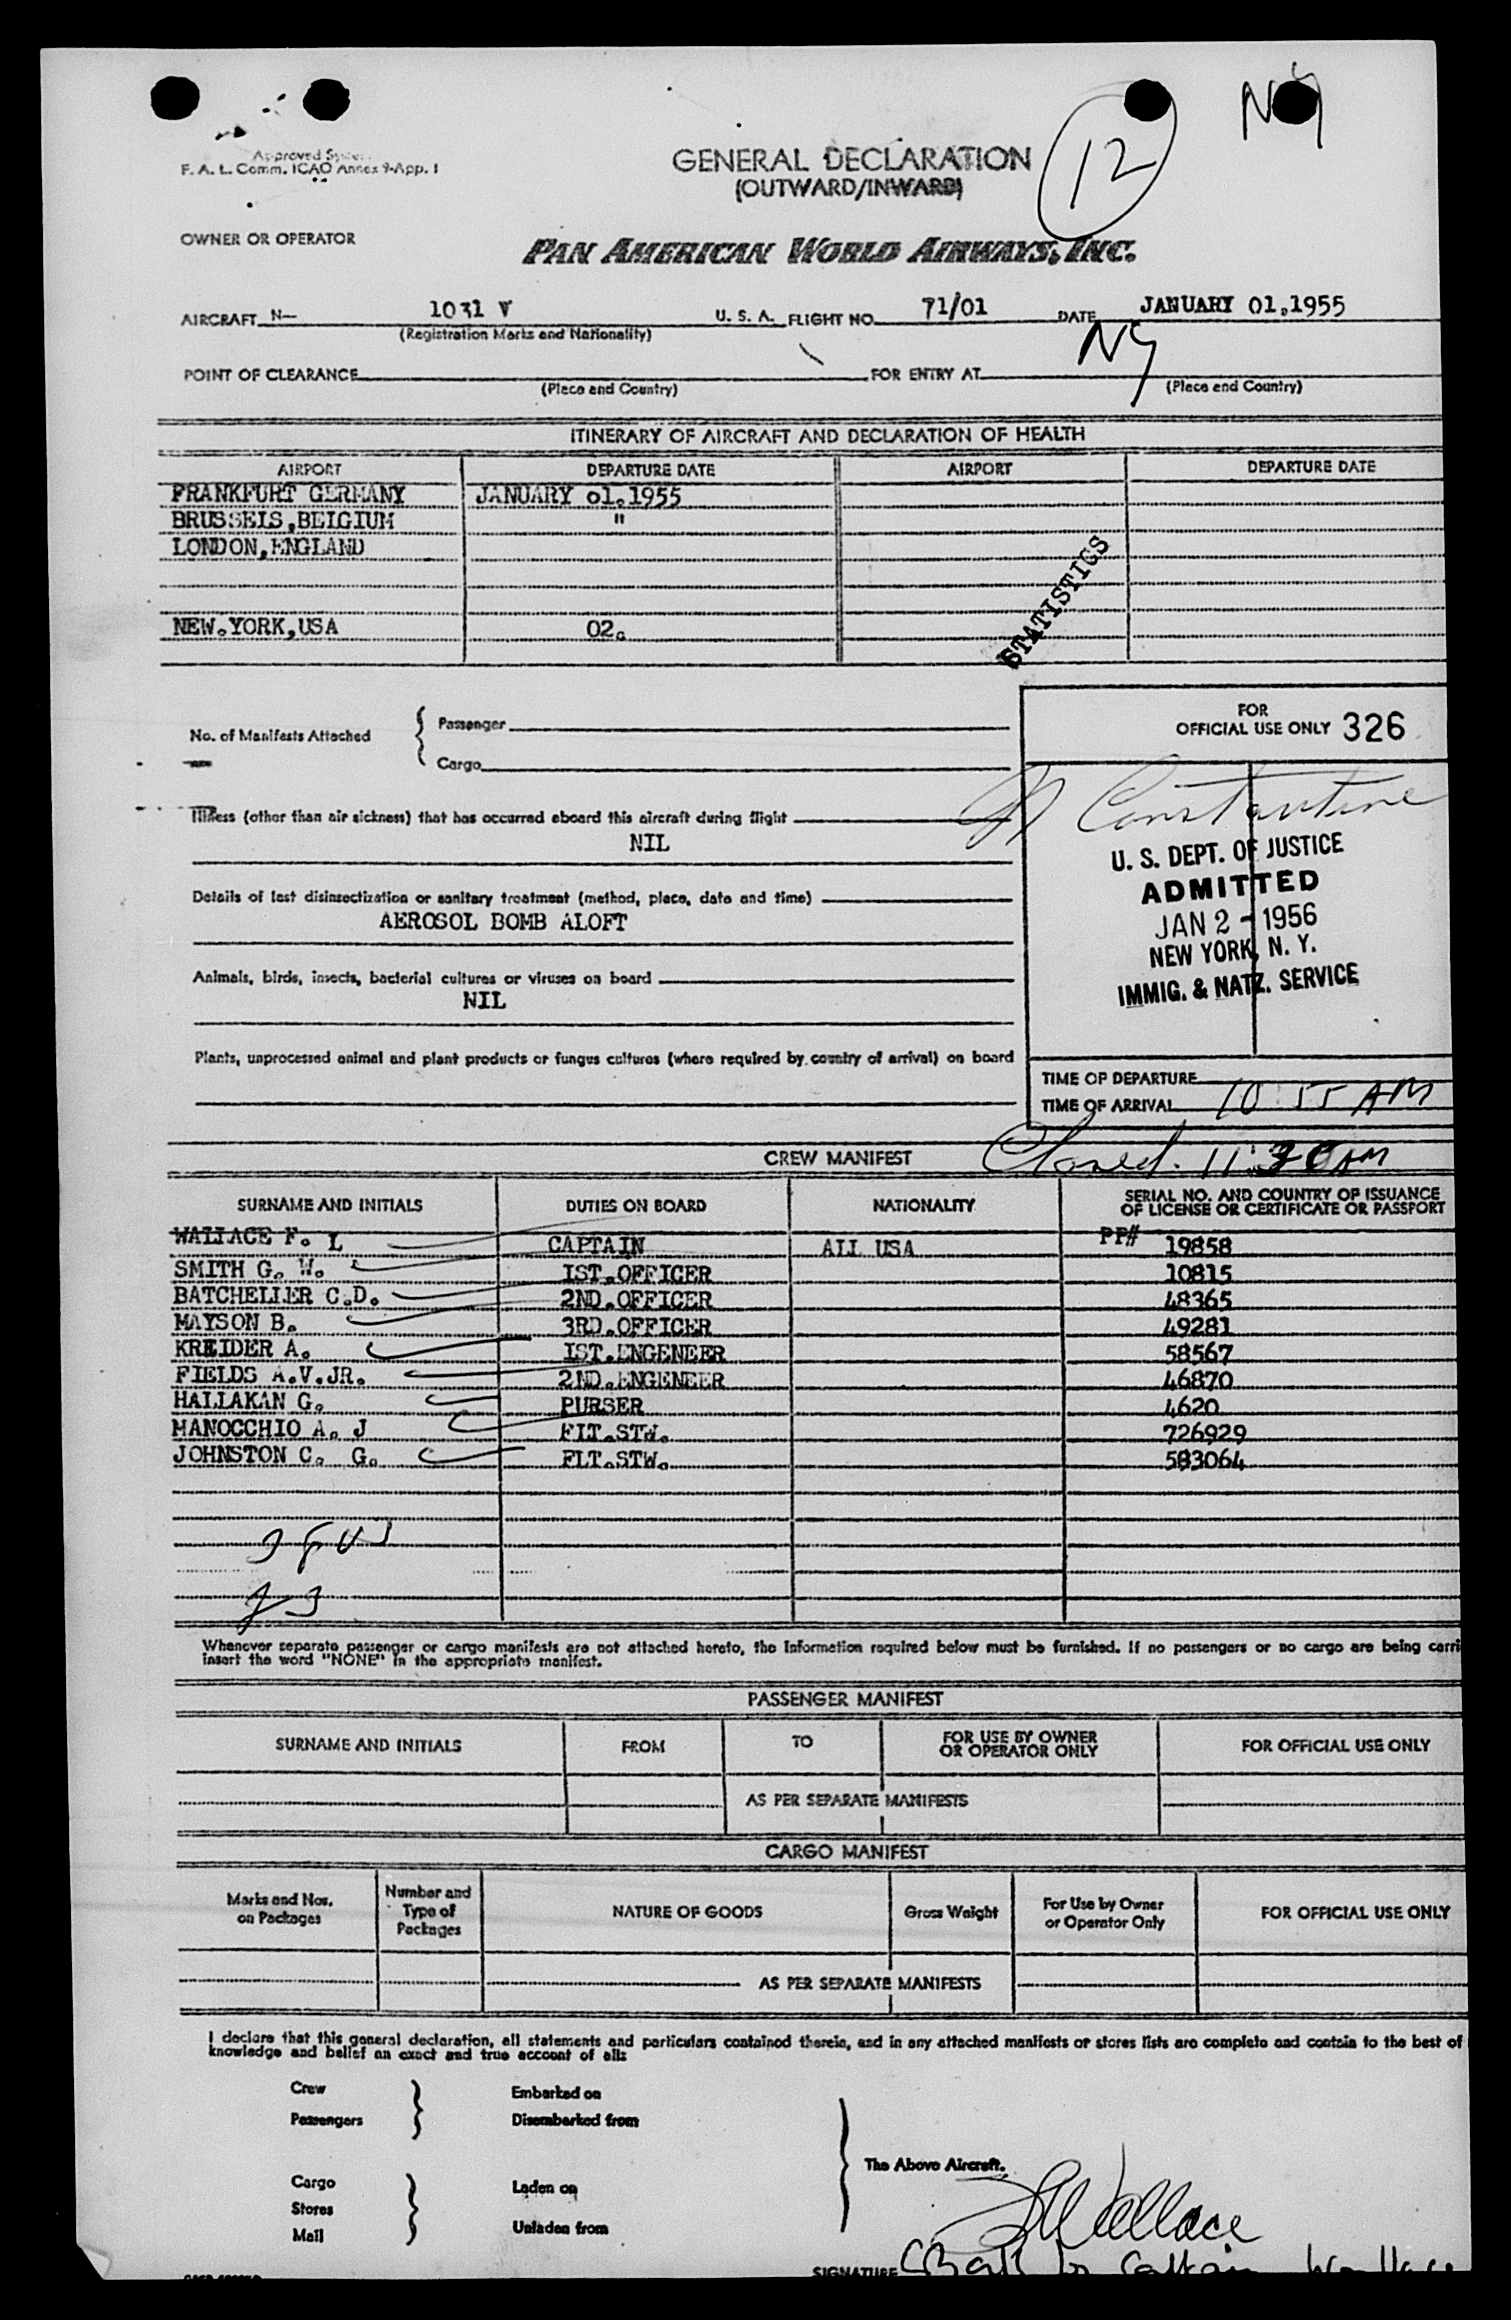 NY
12
Approved
F. A. L. Comm. ICAO Annex 9-App. 1
GENERAL DECLARATION
(OUTWARD/INWARD)
OWNER OR OPERATOR
PAN AMERICAN WORLD AIRWAYS, INC.
AIRCRAFT N- 1031 V U. S. A. FLIGHT NO. 71/01 DATE JANUARY 01.1955
(Registration Marks and Nationality)
POINT OF CLEARANCE FOR ENTRY AT NY
(Place and Country) (Place and Country)
ITINERARY OF AIRCRAFT AND DECLARATION OF HEALTH
AIRPORT DEPARTURE DATE AIRPORT DEPARTURE DATE
FRANKFURT GERMANY JANUARY 01.1955
BRUSSELS,BELGIUM "
LONDON,ENGLAND
STATISTICS
NEW.YORK,USA 02.
No. of Manifests Attached { Passenger
Cargo
FOR
OFFICIAL USE ONLY 326
Constantine
Illness (other than air sickness) that has occurred aboard this aircraft during flight
NIL
U. S. DEPT. OF JUSTICE
ADMITTED
JAN 2 - 1956
NEW YORK, N. Y.
IMMIG. & NATZ. SERVICE
Details of last disinsectization or sanitary treatment (method, place, date and time)
AEROSOL BOMB ALOFT
Animals, birds, insects, bacterial cultures or viruses on board
NIL
Plants, unprocessed animal and plant products or fungus cultures (where required by country of arrival) on board
TIME OF DEPARTURE
TIME OF ARRIVAL 10 55 AM
Closed. 11:30 AM
CREW MANIFEST
SURNAME AND INITIALS DUTIES ON BOARD NATIONALITY SERIAL NO. AND COUNTRY OF ISSUANCE
OF LICENSE OR CERTIFICATE OR PASSPORT
WALLACE F. L CAPTAIN ALL USA PP# 19858
SMITH G. W. IST.OFFICER 10815
BATCHELLER C.D. 2ND.OFFICER 48365
MAYSON B. 3RD.OFFICER 49281
KREIDER A. IST.ENGENEER 58567
FIELDS A.V.JR. 2ND.ENGENEER 46870
HALLAKAN G. PURSER 4620
MANOCCHIO A. J FLT.STW. 726929
JOHNSTON C. G. FLT.STW. 583064
Whenever separate passenger or cargo manifests are not attached hereto, the information required below must be furnished. If no passengers or no cargo are being carri
insert the word "NONE" in the appropriate manifest.
PASSENGER MANIFEST
SURNAME AND INITIALS FROM TO FOR USE BY OWNER
OR OPERATOR ONLY FOR OFFICIAL USE ONLY
AS PER SEPARATE MANIFESTS
CARGO MANIFEST
Marks and Nos.
on Packages Number and
Type of
Packages NATURE OF GOODS Gross Weight For Use by Owner
or Operator Only FOR OFFICIAL USE ONLY
AS PER SEPARATE MANIFESTS
I declare that this general declaration, all statements and particulars contained therein, and in any attached manifests or stores lists are complete and contain to the best of
knowledge and belief an exact and true account of all:
Crew Embarked on
Passengers Disembarked from
The Above Aircraft.
Cargo Laden on
Stores
Mail Unladen from
Wallace
SIGNATURE Captain Wallace